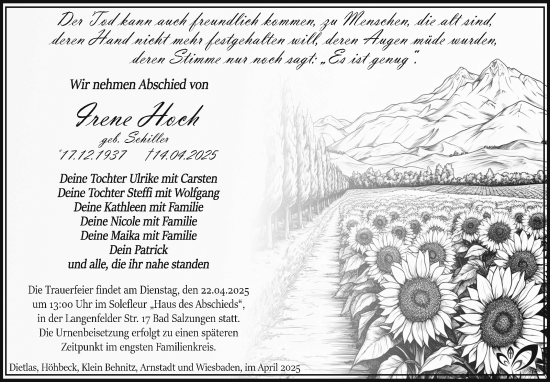 Der Tod kann auch freundlich kommen, zu Menschen, die alt sind,
deren Hand nicht mehr festgehalten will, deren Augen müde wurden,
deren Stimme nur noch sagt: „Es ist genug“.
Wir nehmen Abschied von
Irene Hoch
geb. Schiller
*17.12.1937 †14.04.2025
Deine Tochter Ulrike mit Carsten
Deine Tochter Steffi mit Wolfgang
Deine Kathleen mit Familie
Deine Nicole mit Familie
Deine Maika mit Familie
Dein Patrick
und alle, die ihr nahe standen
Die Trauerfeier findet am Dienstag, den 22.04.2025
um 13:00 Uhr im Solefleur „Haus des Abschieds“,
in der Langenfelder Str. 17 Bad Salzungen statt.
Die Urnenbeisetzung erfolgt zu einem späteren
Zeitpunkt im engsten Familienkreis.
Dietlas, Höhbeck, Klein Behnitz, Arnstadt und Wiesbaden, im April 2025